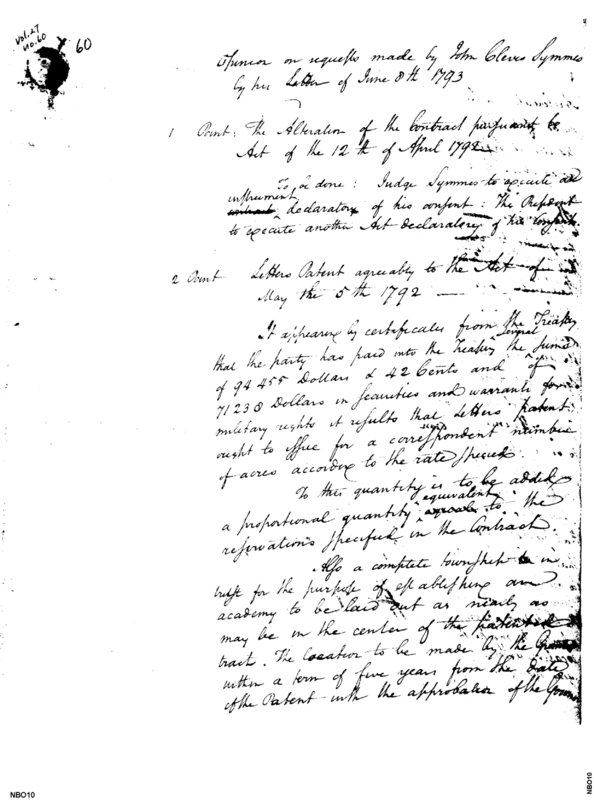 Vol. 27
No. 60
60
Opinion on requests made by John Cleves Symmes
by his Letter of June 8th 1793
1 Point: The Alteration of the Contract pursuant to
Act of the 12th of April 1792
To be done: Judge Symmes to execute an
instrument
contract declaratory of his consent: The President
to execute another Act declaratory of his consent
2 Point Letters Patent agreeably to the Act of
May the 5th 1792 —
It appearing by certificates from the Treasury
several
that the party has paid into the Treasury the sums
of 94455 Dollars & 42 Cents and of
71238 Dollars in Securities and warrants for
military rights it results that Letters patent
ought to issue for a correspondent number
of acres according to the rate specified
To this quantity is to be added
equivalent
a proportional quantity to the
reservations specified in the Contract.
Also a complete township in
trust for the purpose of establishing an
academy to be laid out as nearly as
may be in the center of the patented
tract. The location to be made by the Grantee
within a term of five years from the date
of the Patent with the approbation of the
NBO10
NBO10